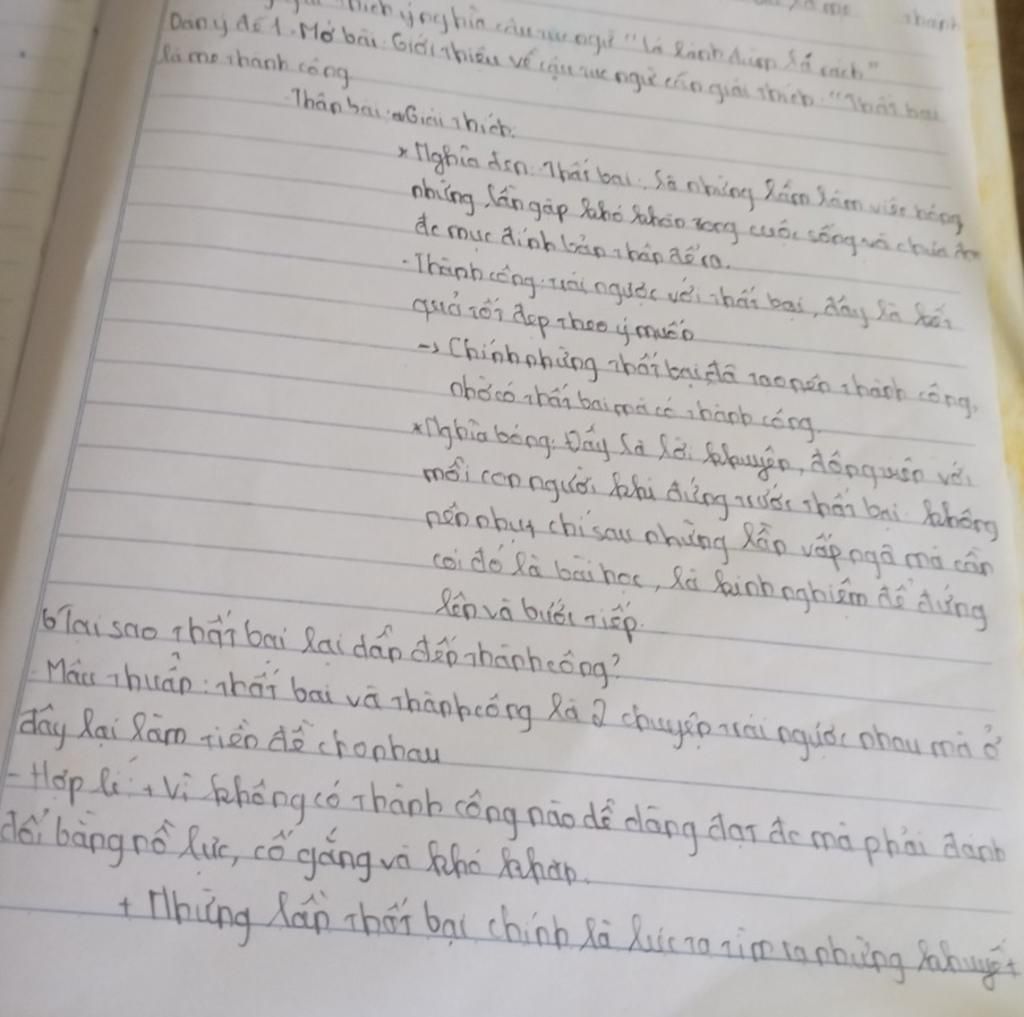 thích ý nghĩa câu tục ngữ "Lá lành đùm lá rách"
Dàn ý đề 1. Mở bài: Giới thiệu về câu tục ngữ cần giải thích: "Thất bại
là mẹ thành công
Thân bài: a Giải thích:
* Nghĩa đen: Thất bại: là những lầm làm việc hỏng,
những lần gặp khó khăn trong cuộc sống và chưa
đc mục đính bản thân đề ra.
- Thành công: trái ngược với thất bại, đây là kết
quả tốt đẹp theo ý muốn
-> Chính những thất bại đã tạo nên thành công,
nhờ có thất bại mà có thành công.
* Nghĩa bóng: Đây là lời khuyên, động viên với
mỗi con người khi đứng trước thất bại. Không
nên nhụt chí sau những lần vấp ngã mà cần
coi đó là bài học, là kinh nghiệm để đứng
lên và bước tiếp.
b Tại sao thất bại lại dẫn đến thành công?
- Mâu thuẩn: thất bại và thành công là 2 chuyện trái ngược nhau mà ở
đây lại làm tiền đề cho nhau
- Hợp lí: + Vì không có thành công nào dể dàng đạt đc mà phải đánh
đổi bằng nổ lực, cố gắng và khó khăn.
+ Những lần thất bại chính là lúc ta tìm ra những khuyết